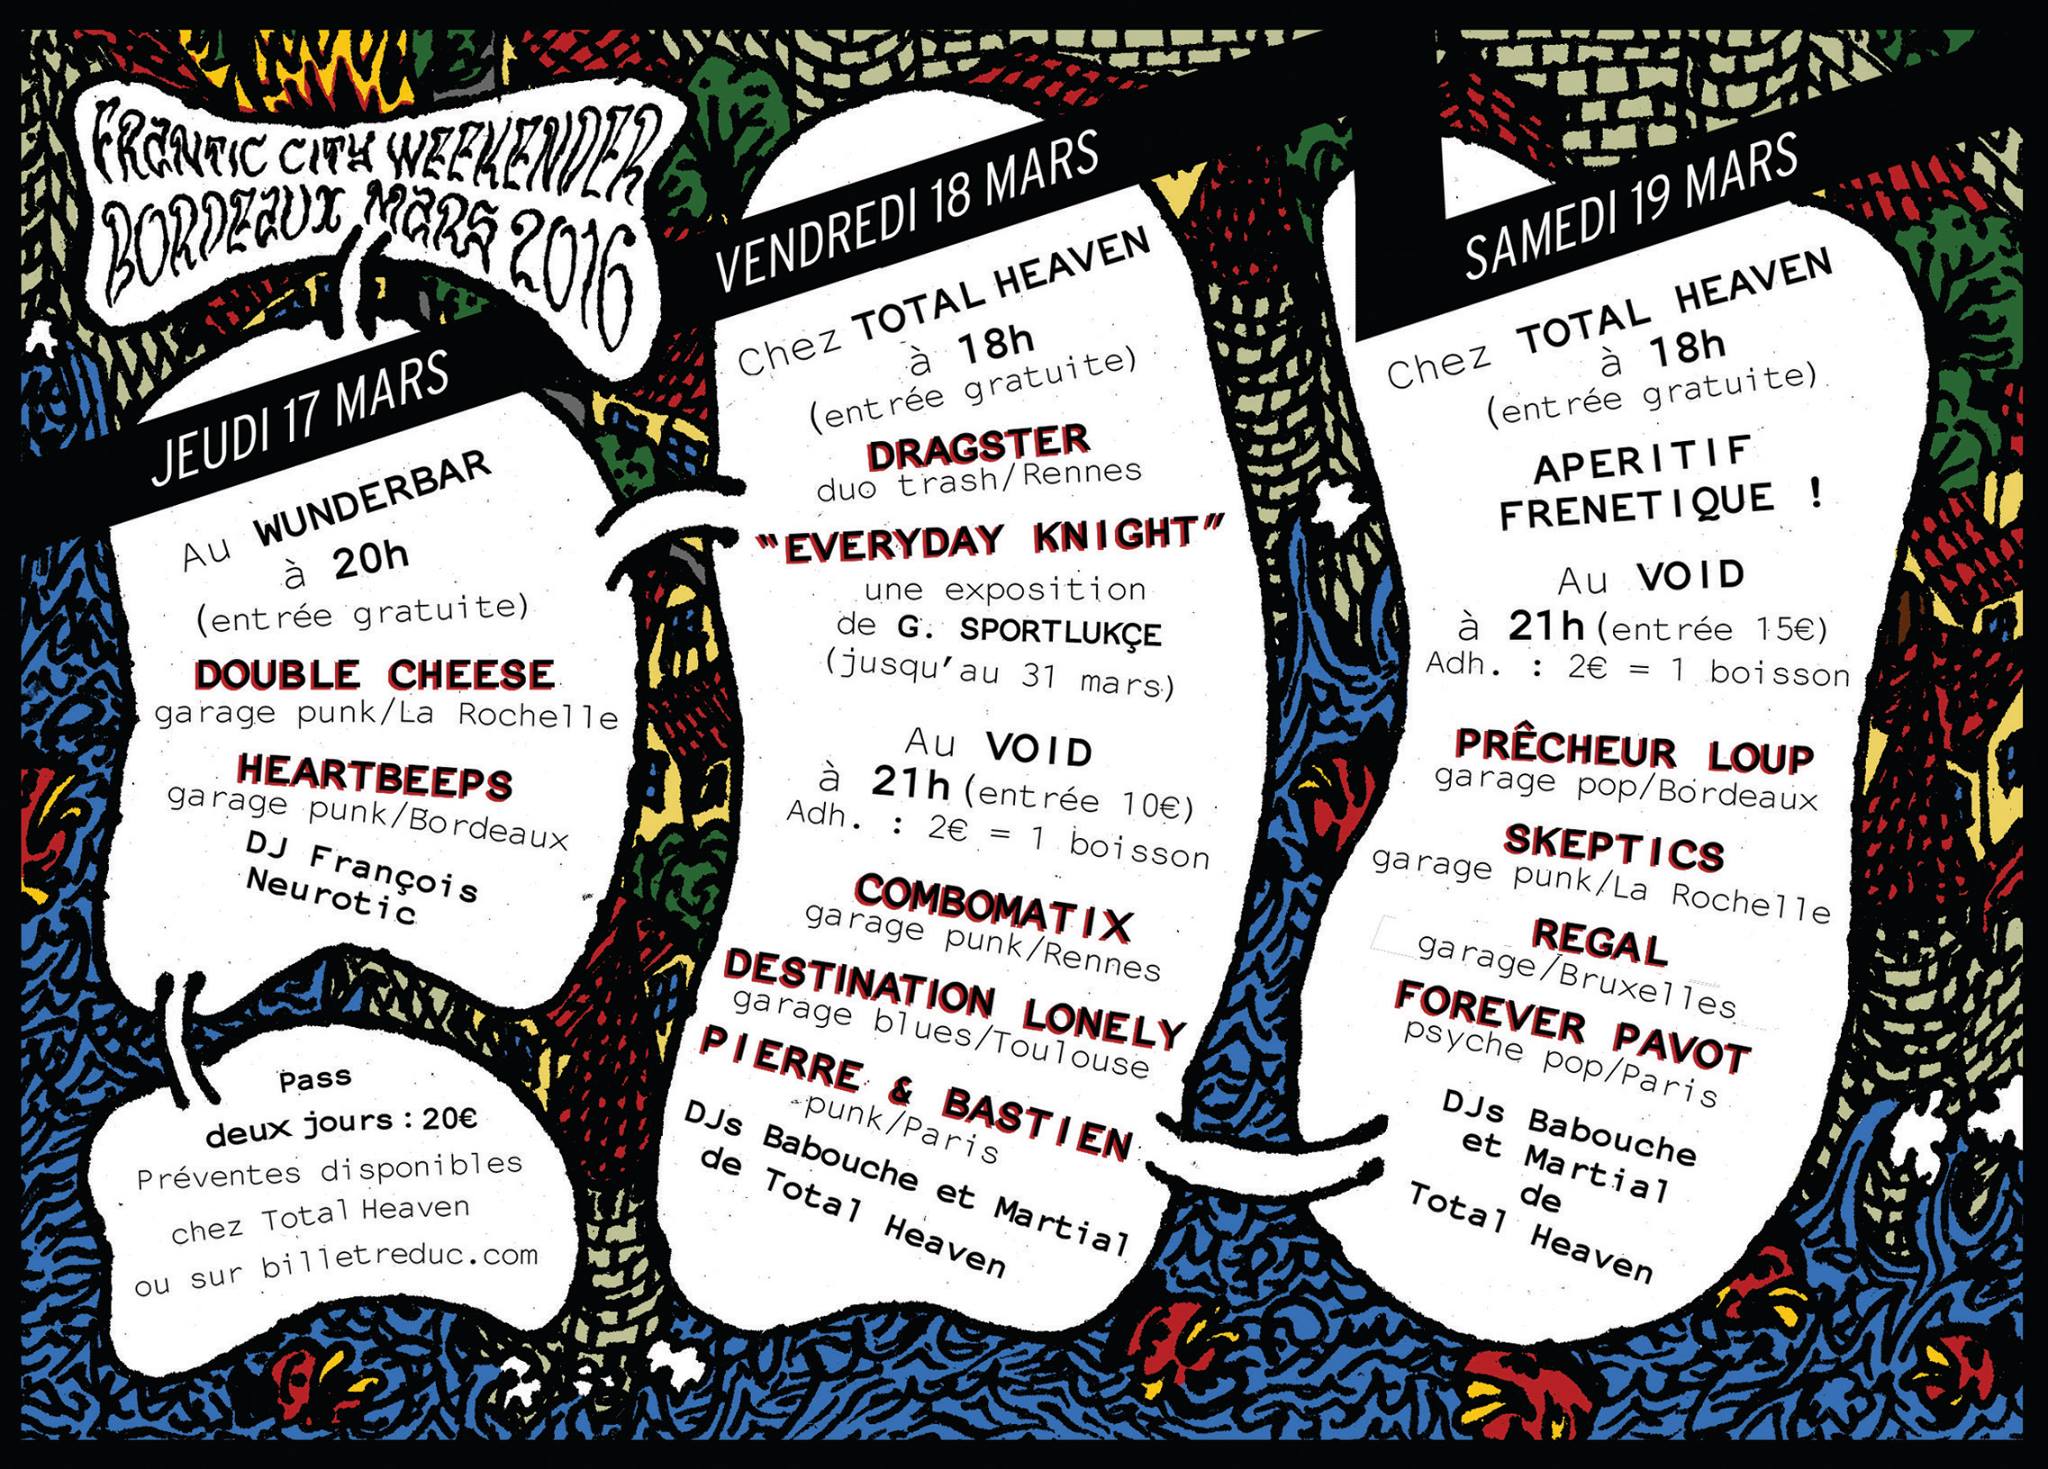 FRANTIC CITY WEEKENDER
BORDEAUX MARS 2016
JEUDI 17 MARS
Au WUNDERBAR
à 20h
(entrée gratuite)
DOUBLE CHEESE
garage punk/La Rochelle
HEARTBEEPS
garage punk/Bordeaux
DJ François
Neurotic
Pass
deux jours : 20€
Préventes disponibles
chez Total Heaven
ou sur billetreduc.com
VENDREDI 18 MARS
Chez TOTAL HEAVEN
à 18h
(entrée gratuite)
DRAGSTER
duo trash/Rennes
"EVERYDAY KNIGHT"
une exposition
de G. SPORTLUKÇE
(jusqu'au 31 mars)
Au VOID
à 21h (entrée 10€)
Adh. : 2€ = 1 boisson
COMBOMATIX
garage punk/Rennes
DESTINATION LONELY
garage blues/Toulouse
PIERRE & BASTIEN
punk/Paris
DJs Babouche et Martial
de Total Heaven
SAMEDI 19 MARS
Chez TOTAL HEAVEN
à 18h
(entrée gratuite)
APERITIF
FRENETIQUE !
Au VOID
à 21h (entrée 15€)
Adh. : 2€ = 1 boisson
PRÊCHEUR LOUP
garage pop/Bordeaux
SKEPTICS
garage punk/La Rochelle
REGAL
garage/Bruxelles
FOREVER PAVOT
psyche pop/Paris
DJs Babouche
et Martial
de
Total Heaven